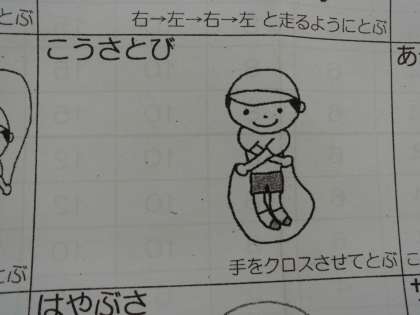 とぶ
右→左→右→左 と走るようにとぶ
こうさとび
あ
手をクロスさせてとぶ
とぶ
こ
はやぶさ